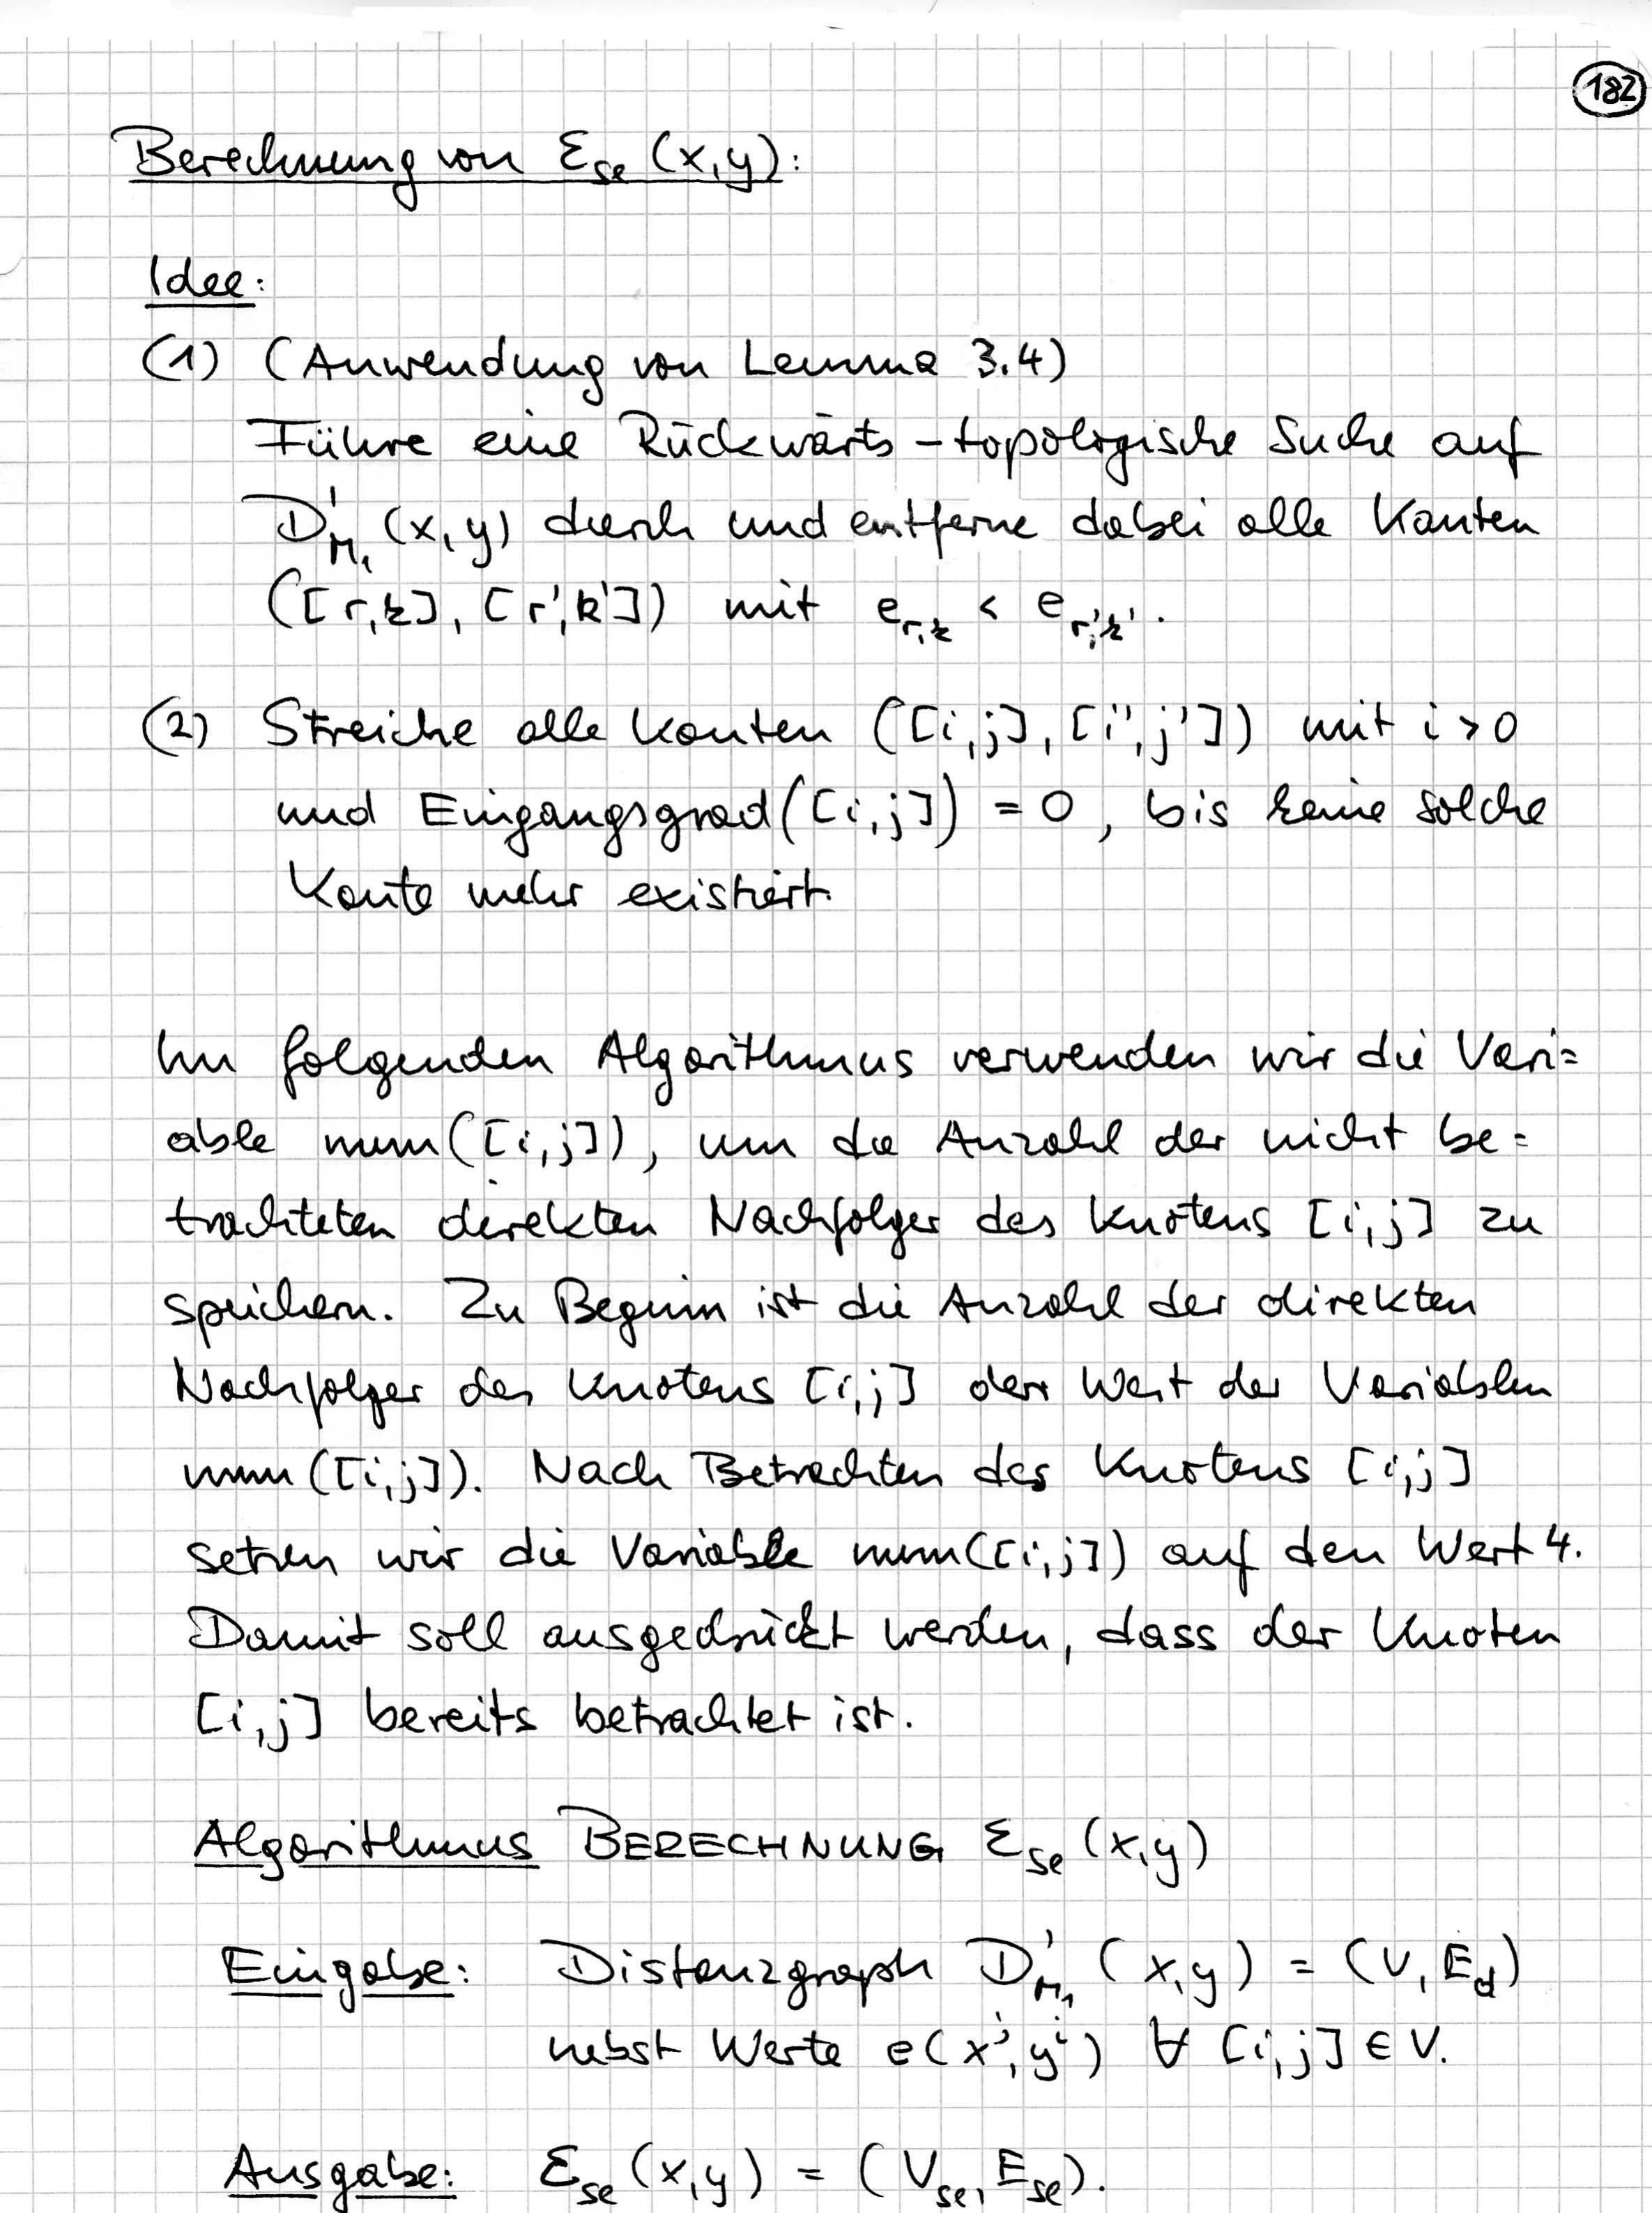 182
Berechnung von Ɛ_se (x,y):
Idee:
(1) (Anwendung von Lemma 3.4)
Führe eine Rückwärts-topologische Suche auf
D'_M₁ (x,y) durch und entferne dabei alle Kanten
([r,k], [r',k']) mit e_r,k < e_r',k'.
(2) Streiche alle Kanten ([i,j], [i',j']) mit i > 0
und Eingangsgrad([i,j]) = 0, bis keine solche
Kante mehr existiert.
Im folgenden Algorithmus verwenden wir die Vari=
able num([i,j]), um die Anzahl der nicht be=
trachteten direkten Nachfolger des Knotens [i,j] zu
speichern. Zu Beginn ist die Anzahl der direkten
Nachfolger des Knotens [i,j] der Wert der Variablen
num([i,j]). Nach Betrachten des Knotens [i,j]
setzen wir die Variable num([i,j]) auf den Wert 4.
Damit soll ausgedrückt werden, dass der Knoten
[i,j] bereits betrachtet ist.
Algorithmus BERECHNUNG Ɛ_se (x,y)
Eingabe: Distanzgraph D'_M₁ (x,y) = (V, E_d)
nebst Werte e(x^j, y^i) ∀ [i,j] ∈ V.
Ausgabe: Ɛ_se (x,y) = (V_se, E_se).